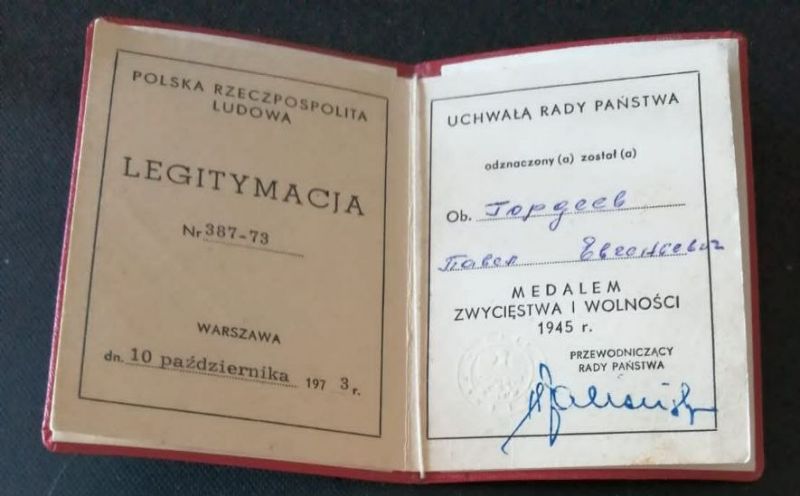 POLSKA RZECZPOSPOLITA
LUDOWA
LEGITYMACJA
Nr 387-73
WARSZAWA
dn. 10 października 1973 r.
UCHWAŁĄ RADY PAŃSTWA
odznaczony (a) został (a)
Ob. Гордеев
Павел Евгеньевич
MEDALEM
ZWYCIĘSTWA I WOLNOŚCI
1945 r.
PRZEWODNICZĄCY
RADY PAŃSTWA